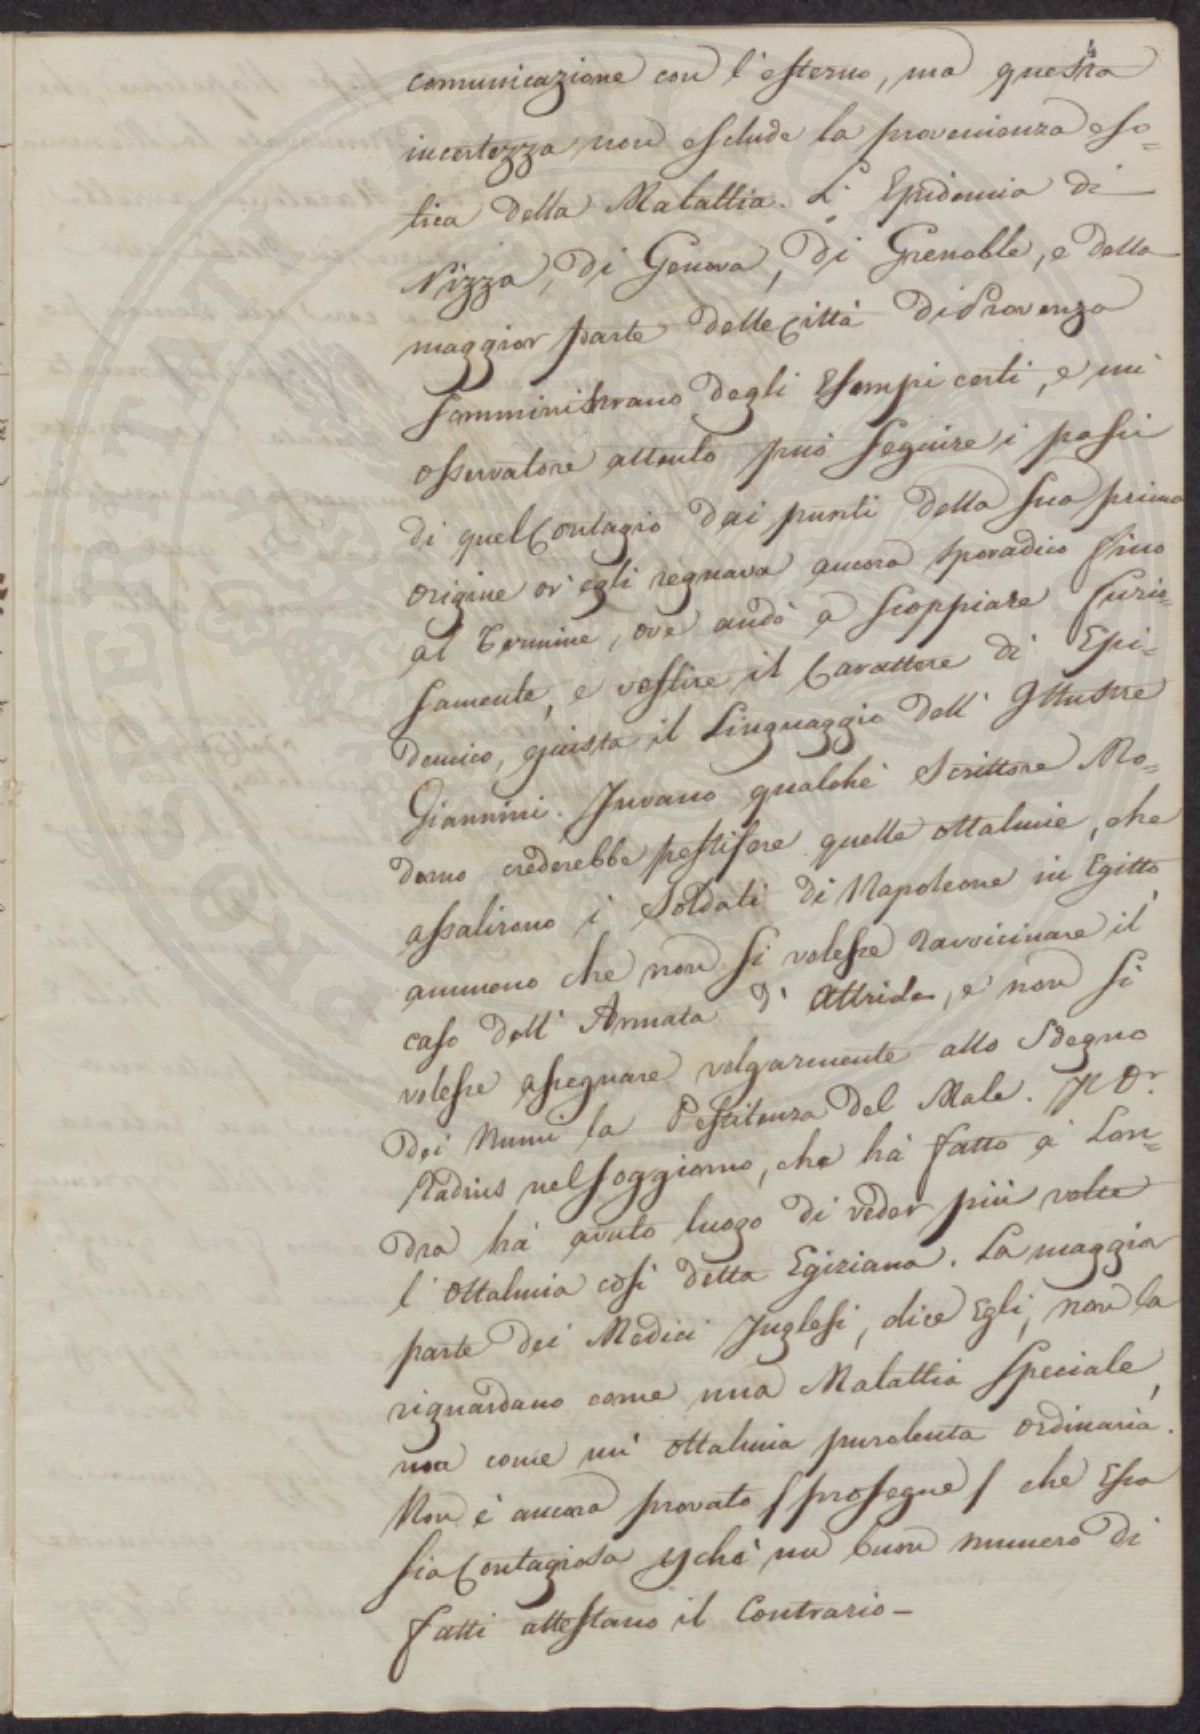 4
comunicazione con l'esterno, ma questa
incertezza non esclude la provenienza eso=
tica della Malattia. L'Epidemia di
Nizza, di Genova, di Grenoble, e della
maggior parte delle Città di Provenza
somministrano degli Esempi certi, e un'
osservatore attento può seguire i passi
di quel Contagio dai punti della sua prima
origine ov'egli regnava ancora sporadico sino
al Termine, ove andò a scoppiare furio=
samente, e vestire il Carattere di Epi=
demico, giusta il Linguaggio dell'Illustre
Giannini. Invano qualche Scrittore Mo=
derno crederebbe pestifere quelle ottalmie, che
assalirono i Soldati di Napoleone in Egitto
ammeno che non si volesse ravvicinare il
caso dell'Armata d'Attride, e non si
volesse assegnare volgarmente allo Sdegno
dei Numi la Pestilenza del Male. Il Dr.
Radius nel soggiorno, che hà fatto a Lon=
dra hà avuto luogo di veder più volte
l'ottalmia così detta Egiziana. La maggior
parte dei Medici Inglesi, dice Egli, non la
riguardano come una Malattia Speciale,
ma come un'ottalmia purolenta ordinaria.
Non è ancora provato / prosegue / che Essa
sia Contagiosa che un buon numero di
fatti attestano il Contrario -
PROSPERITATI PUBLICAE